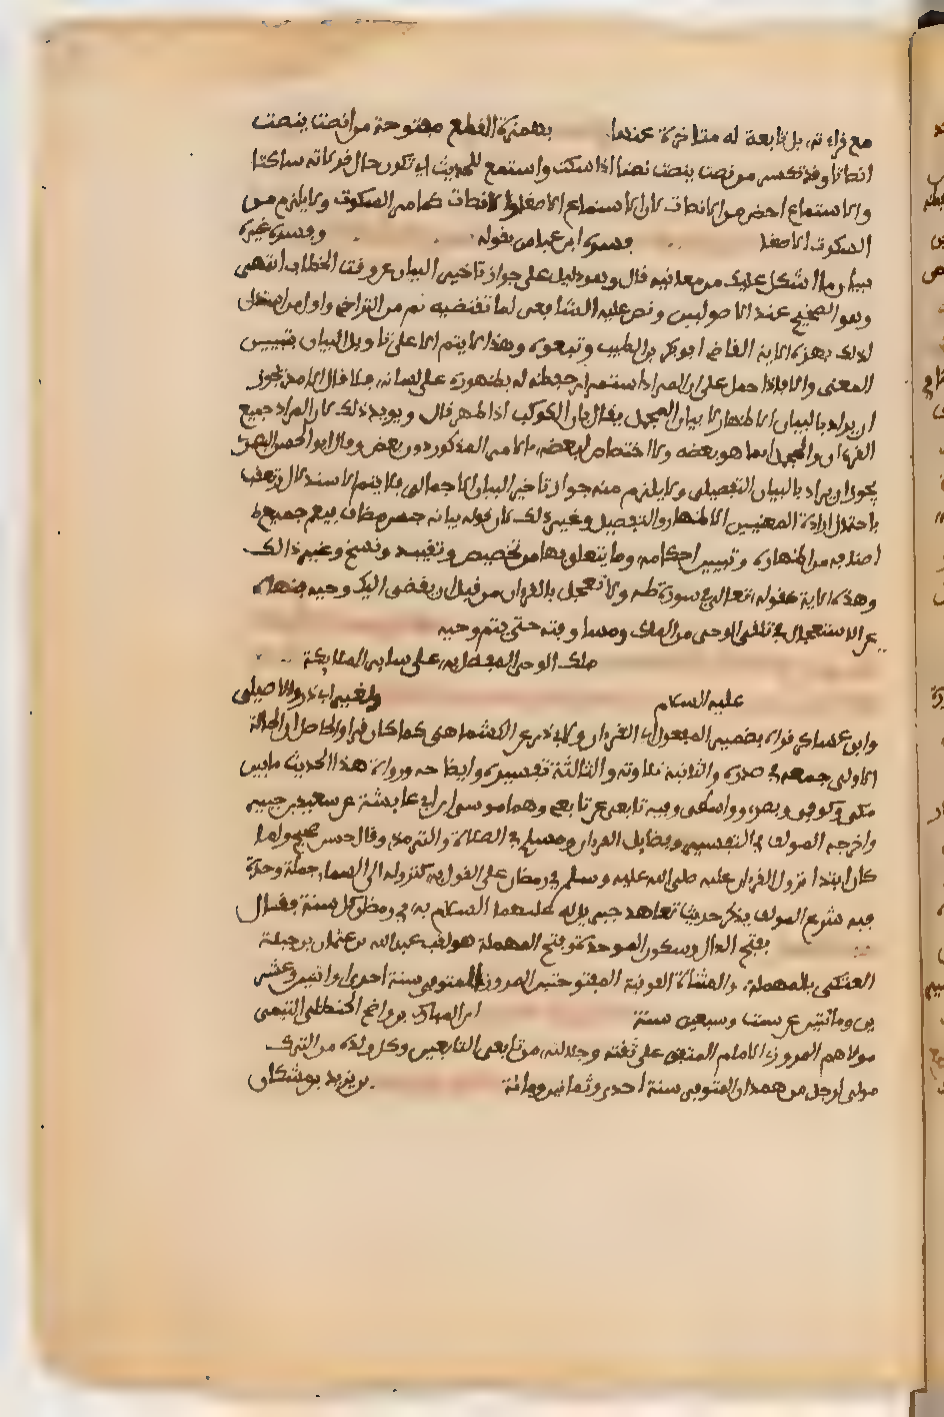 مع قراءته بل تابعة له متاخرة عنها بهمزة القطع مفتوحة من انصت ينصت
انصاتا وقد تكسر من نصت ينصت نصتا اذا سكت واستمع للحديث اي تكون حال قراءته ساكتا
والاستماع اخص من الانصات لان الاستماع الاصغاء والانصات كما مر السكوت ولا يلزم من
السكوت الاصغا فسره ابن عباس بقوله وفسره غيره
ببيان ما اشكل عليك من معانيه قال وهو دليل على جواز تاخير البيان عن وقت الخطاب انتهى
وهو الصحيح عند الاصوليين ونص عليه الشافعي لما تقتضيه ثم من التراخي واول من استدل
لذلك بهذه الاية القاضي ابو بكر بن الطيب وتبعوه وهذا لا يتم الا على تاويل البيان بتبيين
المعنى والا فاذا حمل على ان المراد استمرار حفظه له بظهوره على لسانه فلا قال الامدي يجوز
ان يراد بالبيان الاظهار لا بيان المجمل يقال بان الكوكب اذا ظهر قال ويويد ذلك ان المراد جميع
القرءان والمجمل انما هو بعضه ولا اختصاص لبعضه بالامر المذكور دون بعض وقال ابو الحسن البصري
يجوز ان يراد بالبيان التفصيلي ولا يلزم منه جواز تاخير البيان الاجمالي فلا يتم الاستدلال وتعقب
باحتمال ارادة المعنيين الاظهار والتفصيل وغير ذلك لان قوله بيانه جنس مضاف فيعم جميع
اصنافه من اظهاره وتبيين احكامه وما يتعلق بها من تخصيص وتقييد ونسخ وغير ذالك
وهذه الاية كقوله تعالى في سورة طه ولا تعجل بالقرءان من قبل ان يقضى اليك وحيه فنهاه
عن الاستعجال في تلقي الوحي من الملك ومساوقته حتى يتم وحيه
ملك الوحي المفضل به على ساير الملايكة
عليه السلام ولغير ابي ذر والاصيلي
وابن عساكر قراه بضمير المفعول اي القرءان ولابي ذر عن الكشماهني كما كان قرا والحاصل ان الحالة
الاولى جمعه في صدره والثانية تلاوته والثالثة تفسيره وايضاحه ورواة هذا الحديث ما بين
مكي وكوفي وبصري وواسطي وفيه تابعي عن تابعي وهما موسى بن ابي عايشة عن سعيد بن جبير
واخرجه المولف في التفسير وفضايل القرءان ومسلم في الصلاة والترمذي وقال حسن صحيح ولما
كان ابتدا نزول القرءان عليه صلى الله عليه وسلم في رمضان على القول به كنزوله الى السماء جملة وحدة
فيه شرع المولف يذكر حديث تعاهد جبريل له عليهما السلام به في رمضان كل سنة فقال
بفتح الدال وسكون الموحدة وفتح المهملة هو لقب عبد الله بن عثمان بن جبلة
العتكي بالمهملة والمثناة الفوقية المفتوحتين المروزي المتوفى سنة احدى او اثنين وعشر
ين ومائتين عن ست وسبعين سنة ابن المبارك بن واضح الحنظلي التيمي
مولاهم المروزي الامام المتفق على ثقته وجلالته من تابعي التابعين وكان ولده من الترك
مولى لرجل من همدان المتوفى سنة احدى وثمانين ومائة بن يزيد بن مشكان